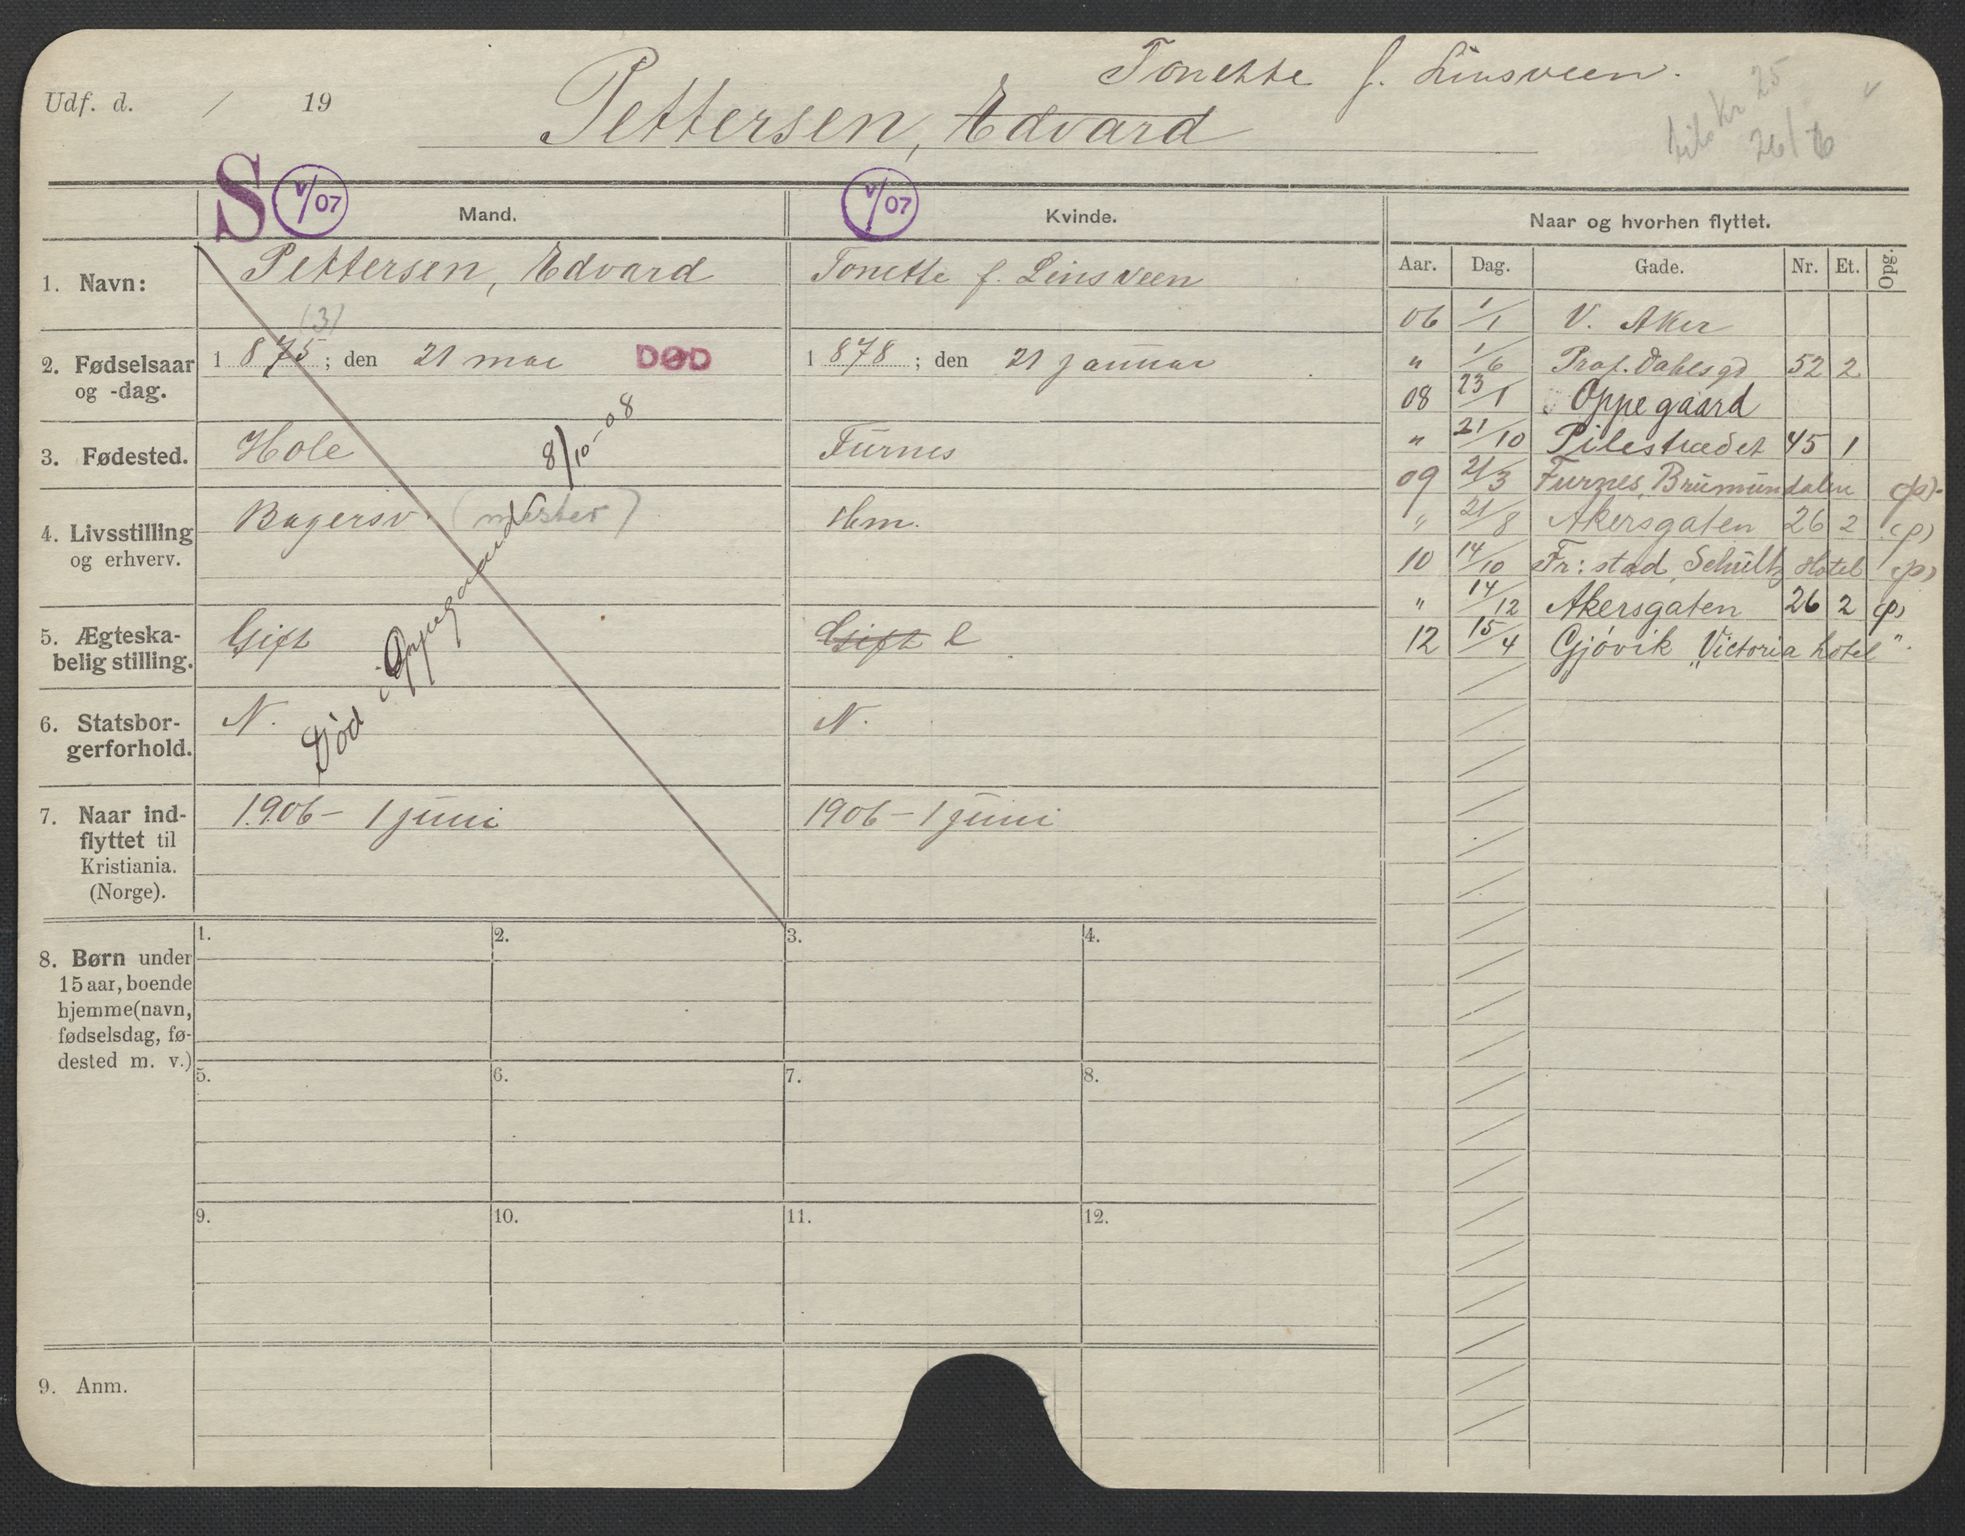 Tonette f. Linsveen.
Udf. d. / 19
Pettersen, Edvard
Kr 25
26/6
S V/07 Mand.
V/07 Kvinde.
Naar og hvorhen flyttet.
Aar. Dag. Gade. Nr. Et. Opg.
1. Navn: Pettersen, Edvard
Tonette f. Linsveen
(3)
2. Fødselsaar og -dag. 1875; den 21 mai DØD
1878; den 21 januar
3. Fødested. Hole
Furnes
Død i Oppegaard 8/10-08
4. Livsstilling og erhverv. Bagersv. (mester)
Hm.
5. Ægteska-
belig stilling. Gift
Gift e
6. Statsbor-
gerforhold. N.
N.
7. Naar ind-
flyttet til
Kristiania.
(Norge).
1906 - 1 juni
1906 - 1 juni
06 1/1 V. Aker
" 1/6 Prof. Dahls gd 52 2
08 23/1 Oppegaard
" 21/10 Pilestrædet 45 1
09 21/3 Furnes, Brumundalen (p).
" 21/8 Akersgaten 26 2 (p)
10 14/10 Fr:stad, Schultz Hotel (p)
" 14/12 Akersgaten 26 2 (p)
12 15/4 Gjøvik "Victoria hotel".
8. Børn under
15 aar, boende
hjemme (navn,
fødselsdag, fø-
dested m. v.)
1. 2. 3. 4.
5. 6. 7. 8.
9. 10. 11. 12.
9. Anm.